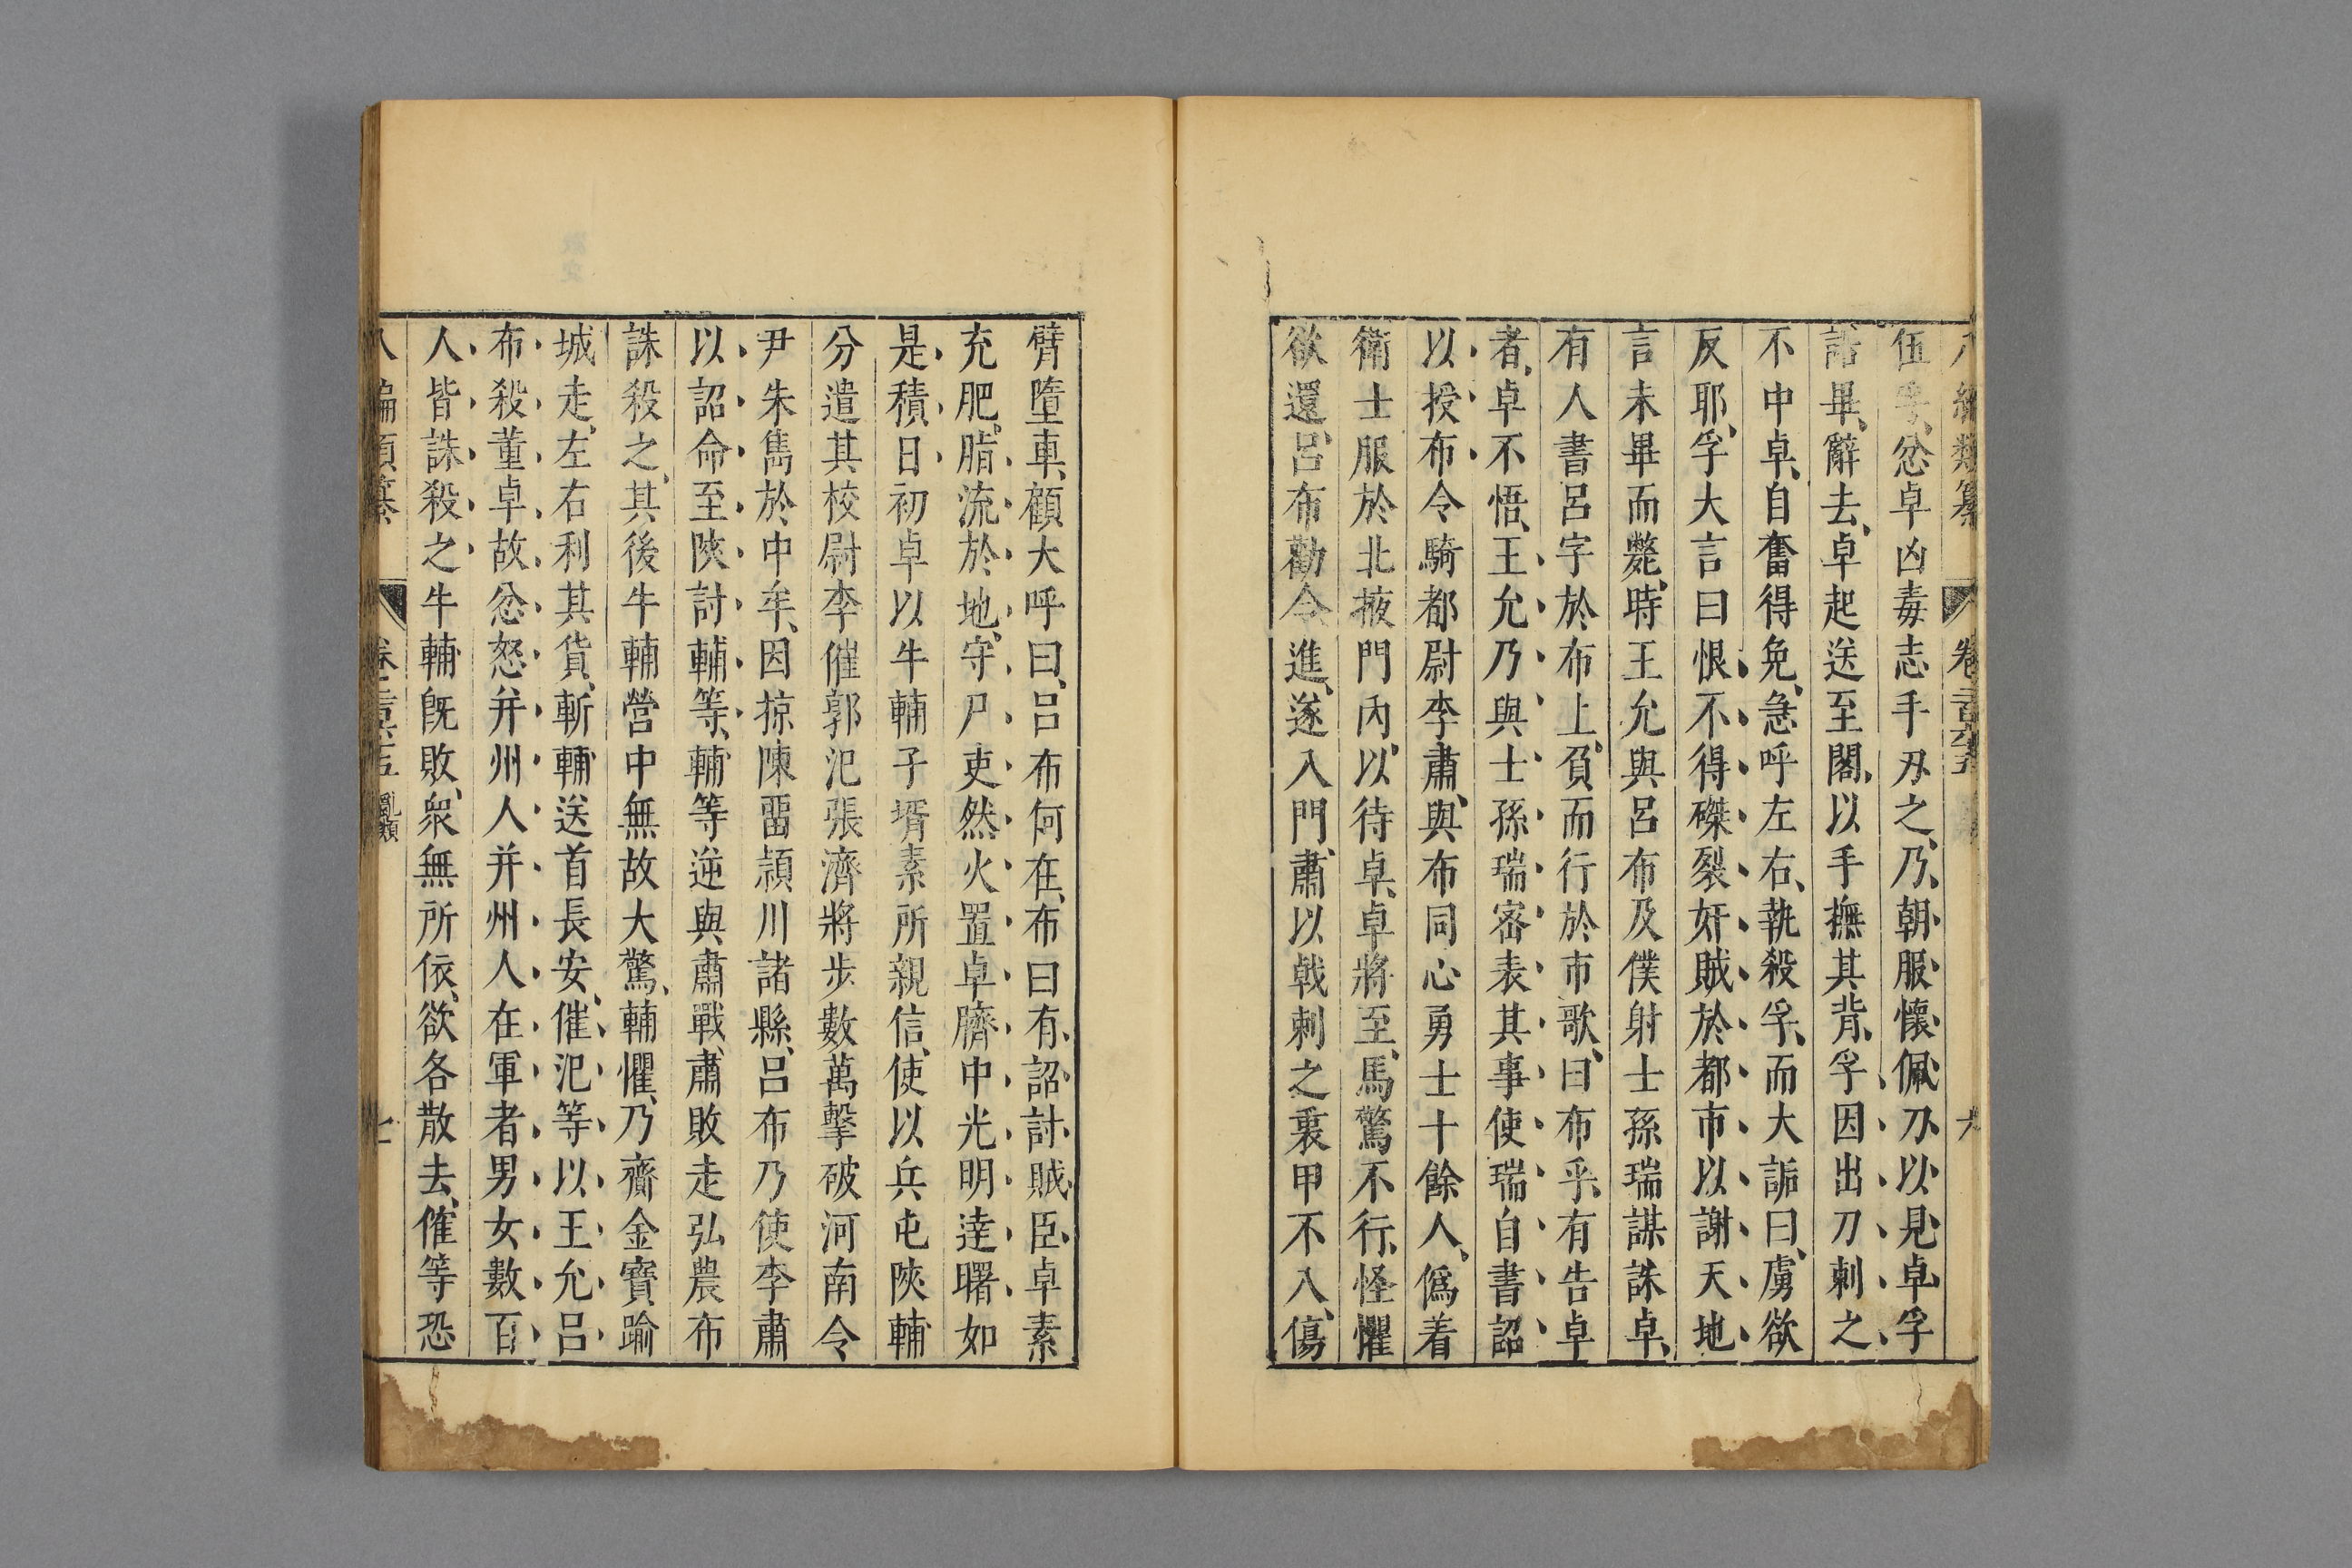 八編類纂 卷二百六十五 六
伍孚忿卓凶毒志手刃之乃朝服懷佩刀以見卓孚
語畢辭去卓起送至閤以手撫其背孚因出刀刺之
不中卓自奮得免急呼左右執殺孚而大詬曰虜欲
反耶孚大言曰恨不得磔裂奸賊於都市以謝天地
言未畢而斃時王允與呂布及僕射士孫瑞謀誅卓
有人書呂字於布上負而行於市歌曰布乎有告卓
者卓不悟王允乃與士孫瑞密表其事使瑞自書詔
以授布令騎都尉李肅與布同心勇士十餘人僞着
衛士服於北掖門內以待卓卓將至馬驚不行怪懼
欲還呂布勸令進遂入門肅以戟刺之裹甲不入傷
臂墮車顧大呼曰呂布何在布曰有詔討賊臣卓素
充肥脂流於地守尸吏然火置卓臍中光明達曙如
是積日初卓以牛輔子壻素所親信使以兵屯陝輔
分遣其校尉李傕郭汜張濟將步數萬擊破河南令
尹朱雋於中牟因掠陳畱潁川諸縣呂布乃使李肅
以詔命至陝討輔等輔等逆與肅戰肅敗走弘農布
誅殺之其後牛輔營中無故大驚輔懼乃齎金寶踰
城走左右利其貨斬輔送首長安傕汜等以王允呂
布殺董卓故忿怒并州人并州人在軍者男女數百
人皆誅殺之牛輔旣敗衆無所依欲各散去傕等恐
八編類纂 卷二百六十五 亂類 七